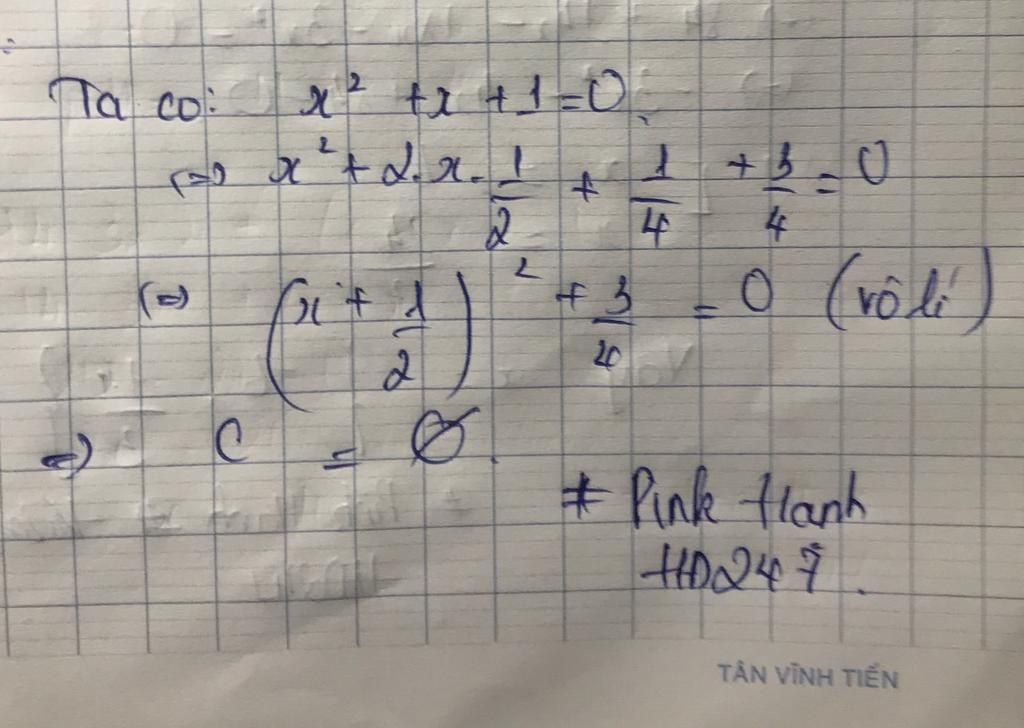 Ta có: x² + x + 1 = 0.
(=) x² + 2.x.1/2 + 1/4 + 3/4 = 0
(=) (x + 1/2)² + 3/4 = 0 (vô lí)
=) C = Ø.
* Pink Hanh
HD247.
TÂN VĨNH TIẾN